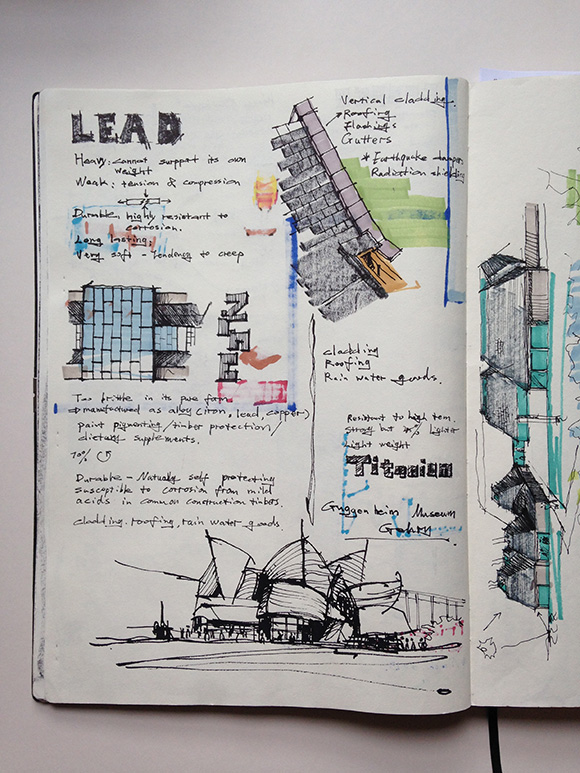 LEAD
Heavy: cannot support its own
weight
Weak: tension & compression
Durable, highly resistant to
corrosion.
Long lasting,
Very soft - tendency to creep
Vertical cladding
Roofing
Flashings
Gutters
* Earthquake dampers
Radiation shielding
ZINC
Too brittle in its pure form
manufactured as alloy (iron, lead, copper)
paint pigmenting/timber protection/
dietary supplements.
70%
Durable - Natually self protecting
susceptible to corrosion from mild
acids in common construction timbers.
cladding, roofing, rain water goods
cladding
Roofing
Rain water goods.
Resistant to high tem.
strong but % lighter
light weight
Titanium
Guggenheim Museum
Gehry